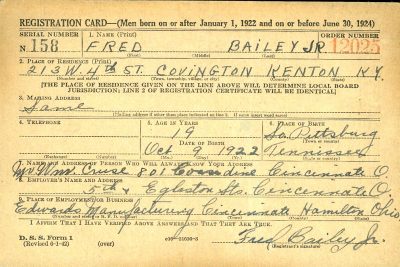 REGISTRATION CARD—(Men born on or after January 1, 1922 and on or before June 30, 1924)
SERIAL NUMBER 1. NAME (Print) ORDER NUMBER
N 158 FRED BAILEY JR. 12025
(First) (Middle) (Last)
2. PLACE OF RESIDENCE (Print)
213 W. 4th ST. COVINGTON KENTON KY.
(Number and street) (Town, township, village, or city) (County) (State)
[THE PLACE OF RESIDENCE GIVEN ON THE LINE ABOVE WILL DETERMINE LOCAL BOARD
JURISDICTION; LINE 2 OF REGISTRATION CERTIFICATE WILL BE IDENTICAL]
3. MAILING ADDRESS
Same
[Mailing address if other than place indicated on line 2. If same insert word same]
4. TELEPHONE 5. AGE IN YEARS 6. PLACE OF BIRTH
19 So. Pittsburg
DATE OF BIRTH
Oct 9 1922 Tennessee
(Mo.) (Day) (Yr.) (State or country)
7. NAME AND ADDRESS OF PERSON WHO WILL ALWAYS KNOW YOUR ADDRESS
Wm. Cruse 801 Cincennate O.
8. EMPLOYER'S NAME AND ADDRESS
5th & Egleston Sts. Cincennate O.
9. PLACE OF EMPLOYMENT OR BUSINESS
Edwards Manufacturing Cincennate Hamilton Ohio
I AFFIRM THAT I HAVE VERIFIED ABOVE ANSWERS AND THAT THEY ARE TRUE.
D. S. S. Form 1
(Revised 6-1-42) (over) Fred Bailey Jr.
(Registrant's signature)